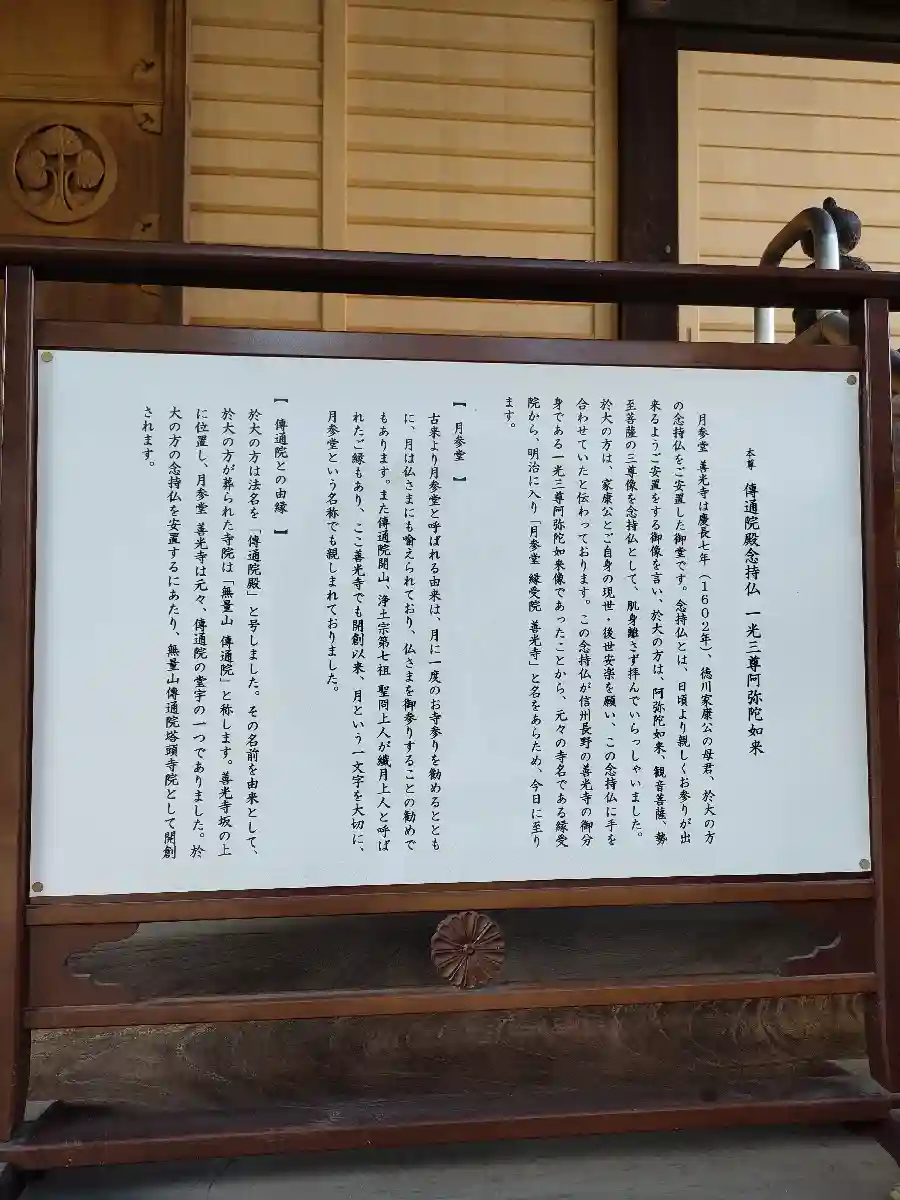 本尊 傳通院殿念持仏 一光三尊阿弥陀如来
月参堂 善光寺は慶長七年(1602年)、徳川家康公の母君、於大の方
の念持仏をご安置した御堂です。念持仏とは、日頃より親しくお参りが出
来るようご安置をする御像を言い、於大の方は、阿弥陀如来、観音菩薩、勢
至菩薩の三尊像を念持仏として、肌身離さず拝んでいらっしゃいました。
於大の方は、家康公とご自身の現世・後世安楽を願い、この念持仏に手を
合わせていたと伝わっております。この念持仏が信州長野の善光寺の御分
身である一光三尊阿弥陀如来像であったことから、元々の寺名である縁受
院から、明治に入り「月参堂 縁受院 善光寺」と名をあらため、今日に至り
ます。
【 月参堂 】
古来より月参堂と呼ばれる由来は、月に一度のお寺参りを勧めるととも
に、月は仏さまにも喩えられており、仏さまを御参りすることの勧めで
もあります。また傳通院開山、浄土宗第七祖 聖冏上人が繊月上人と呼ば
れたご縁もあり、ここ善光寺でも開創以来、月という一文字を大切に、
月参堂という名称でも親しまれておりました。
【 傳通院との由縁 】
於大の方は法名を「傳通院殿」と号しました。その名前を由来として、
於大の方が葬られた寺院は「無量山 傳通院」と称します。善光寺坂の上
に位置し、月参堂 善光寺は元々、傳通院の堂宇の一つでありました。於
大の方の念持仏を安置するにあたり、無量山傳通院塔頭寺院として開創
されます。